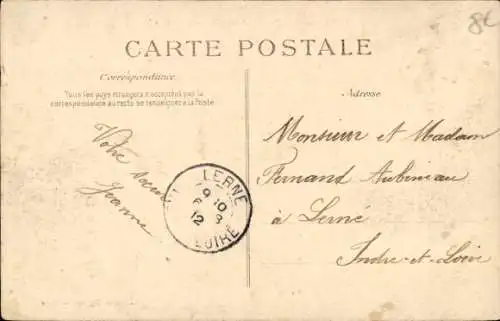 8€
CARTE POSTALE
Correspondance
Tous les pays étrangers n'acceptent pas la
correspondance au recto se renseigner à la Poste
Votre sœur
Jeanne
LERNÉ
9 10
12
LOIRE
Adresse
Monsieur et Madam
Fernand Aubineau
à Lerné
Indre-et-Loire